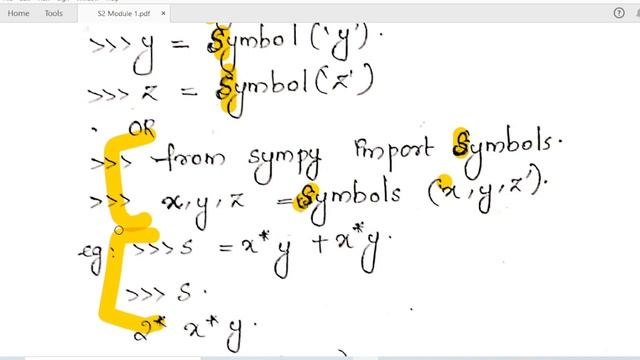 Home Tools S2 Module 1.pdf ×
>>> y = Symbol ('y').
>>> z = Symbol ('z')
. OR
>>> from sympy import Symbols.
>>> x, y, z = Symbols (x, y, z').
eg: >>> s = x* y + x* y.
>>> s.
2* x* y.